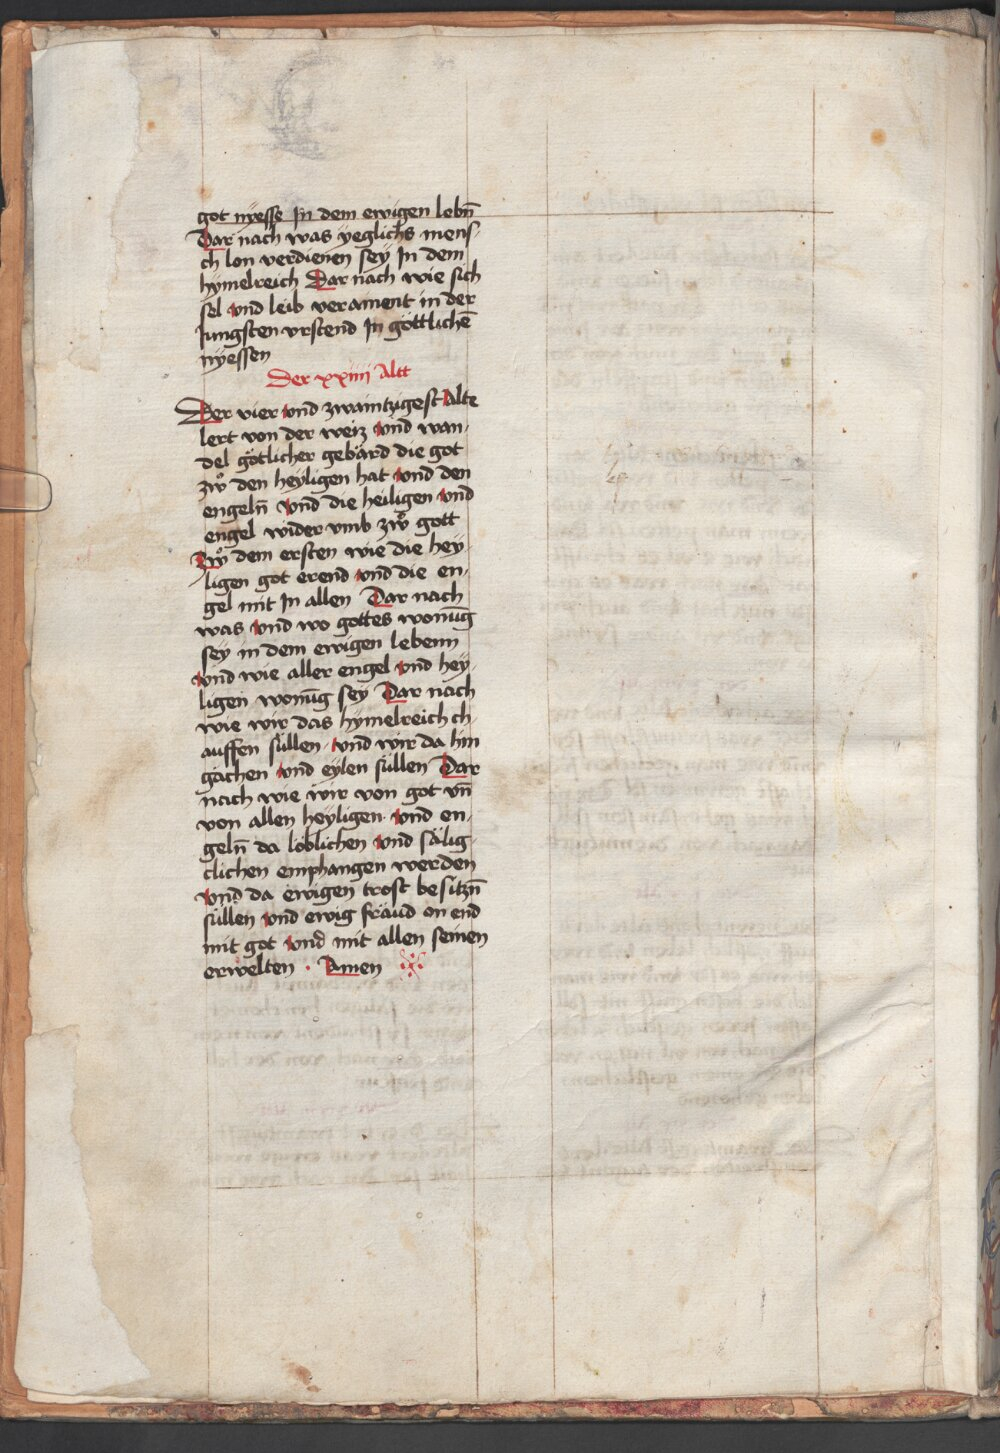 got nyesse In dem ewigen lebn̄
Dar nach was yeglichs mens-
ch lon verdienen sey In dem
hymelreich Dar nach wie sich
sel vnd leib verament in der
Jungsten vrstend In göttlichē
nyessen
Der xxiiij Altt
Der vier vnd zwaintzigest Alte
lert von der weiz vnd wan-
del götlicher gebärd die got
zwͦ den heyligen hat vnd den
engeln̄ vnd die heiligen vnd
engel wider vmb zwͦ gott
Zwͦ dem ersten wie die hey-
ligen got erend vnd die en-
gel mit In allen Dar nach
was vnd wo gottes wonūg
sey in dem ewigen lebenn
vnd wie aller engel vnd hey-
ligen wonūg sey Dar nach
wie wir das hymelreich ch-
auffen süllen vnd wir da hin
gächen vnd eylen süllen Dar
nach wie wir von got vn̄
von allen heyligen vnd en-
geln̄ da löblichen vnd sälig-
clichen emphangen werden
vnd da ewigen trost besitzn̄
süllen vnd ewig fräud on end
mit got vnd mit allen seinen
erwelten · Amen